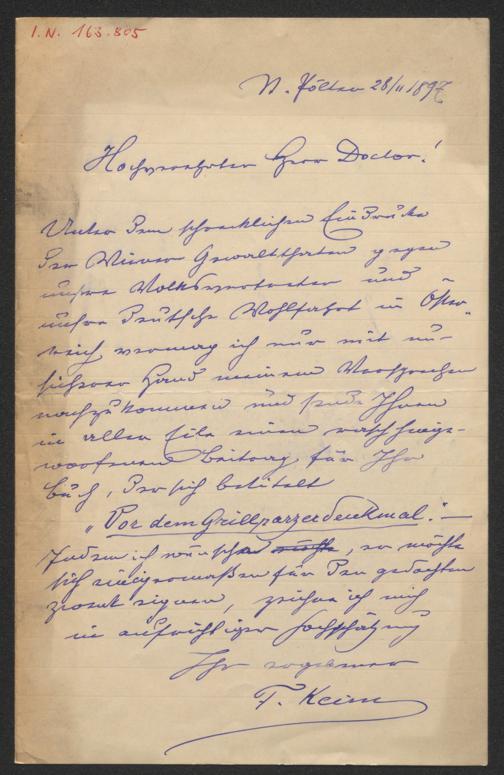 I.N. 163.805
St. Pölten 28/11 1897
Hochverehrter Herr Doctor!
Unter dem schrecklichen Eindrucke
der Wiener Gewaltthaten gegen
unsere Volksvertreter und
unsere deutsche Wohlfahrt in Öster-
reich vermag ich nur mit un-
sicherer Hand meinem Versprechen
nachzukommen und sende Ihnen
in aller Eile einen rasch hinge-
worfenen Beitrag für Ihr
Buch, der sich betitelt
„Vor dem Grillparzerdenkmal." —
Indem ich wünsche, er möchte
sich einigermaßen für den gedachten
Zweck eignen, zeichne ich mich
in aufrichtiger Hochschätzung
Ihr ergebener
F. Keim